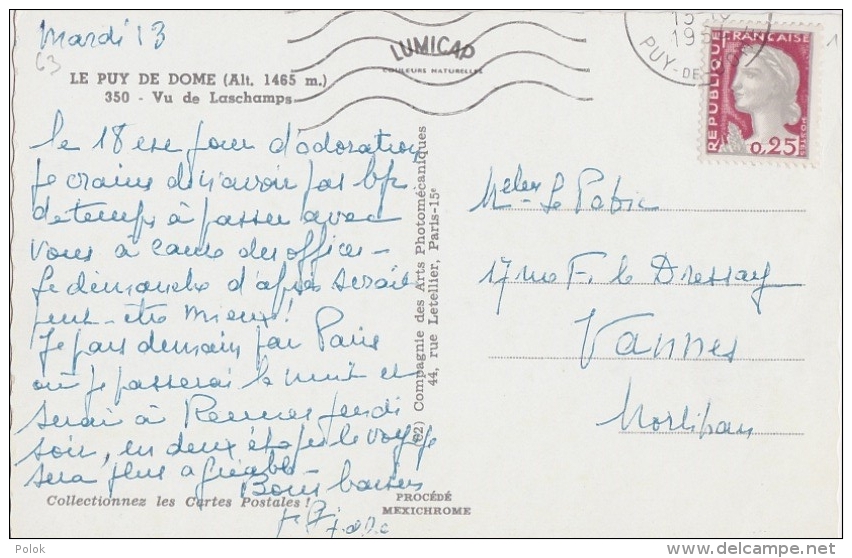 Mardi 13
63
LE PUY DE DOME (Alt. 1465 m.)
350 - Vu de Laschamps
LUMICAP
COULEURS NATURELLES
15-10
195
PUY-DE-DOME
REPUBLIQUE FRANÇAISE
POSTES
0,25
1
le 18 ere jour d'adoration
je crains de n'avoir pas bp
de temps à passer avec
vous à cause des offices -
Le dimanche d'après serait
peut-être mieux!
Je pars demain par Paris
où je passerai la nuit et
serai à Rennes jeudi
soir, en deux étapes le voyage
sera plus agréable -
Bons baisers
(62) Compagnie des Arts Photomécaniques
44, rue Letellier, Paris-15e
Melles Le
17 rue F. le Dressay
Vannes
Morbihan
Collectionnez les Cartes Postales !
PROCÉDÉ
MEXICHROME
Polok
www.delcampe.net